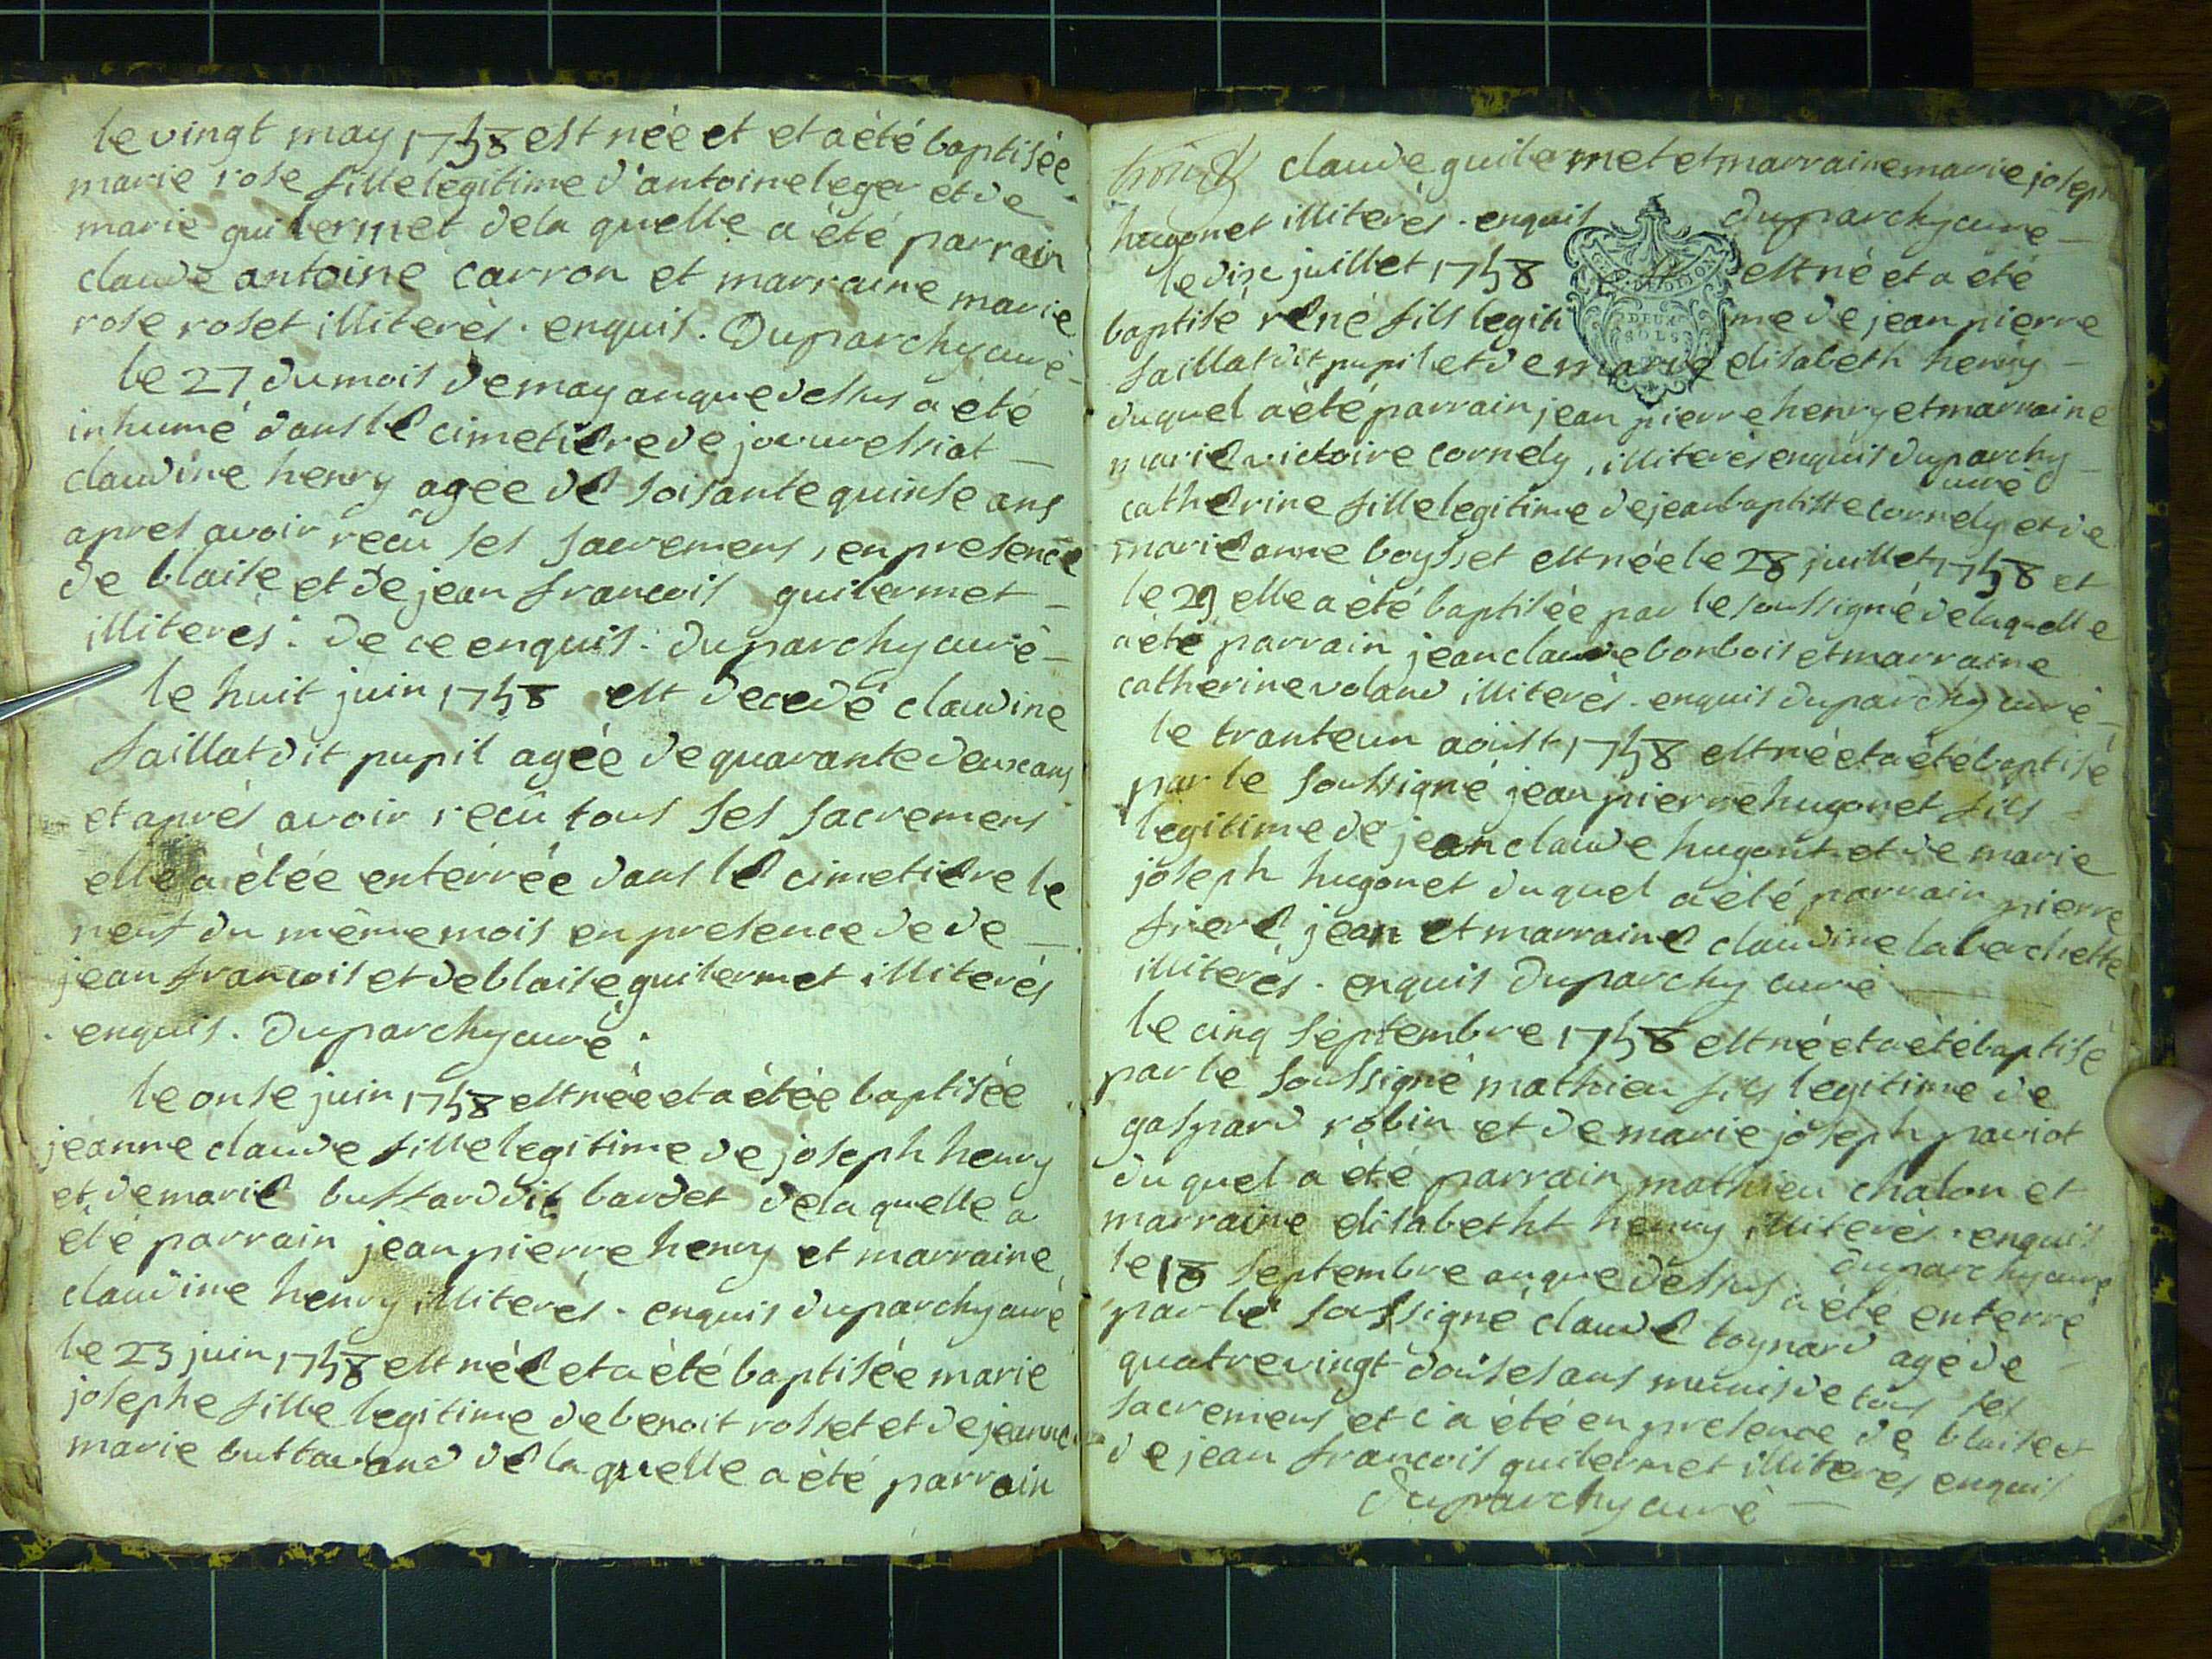 le vingt may 1758 est née et et a été baptisée
marie rose fille legitime d'antoine leger et de
marie guilermet dela quelle a été parrain
claude antoine carron et marraine marie
rose roset illiterés. enquis. Duparchy curé
le 27 du mois de may an que dessus a été
inhumé dans le cimetière de jouvressiat
claudine henry agee de soisante quinse ans
apres avoir recu ses sacremens, en presence
de blaise et de jean francois guilermet
illiterés. de ce enquis. duparchy curé
le huit juin 1758 est decedé claudine
saillat dit pupil agée de quarante deux ans
et après avoir recû tous ses sacremens
elle a étée enterrée dans le cimetière le
neuf du même mois en presence de de
jean francois et de blaise guilermet illiterés
enquis. Duparchy curé.
le onse juin 1758 est née et a étée baptisée
jeanne claude fille legitime de joseph henry
et de marie buffard dit bardet dela quelle a
été parrain jean pierre henry et marraine
claudine henry illiterés. enquis duparchy curé
le 23 juin 1758 est née et a été baptisée marie
josephe fille legitime de benoit rosset et de jeanne
marie de la quelle a été parrain
claude guilermet et marraine marie joseph
hugonet illiterés. enquis duparchy curé
le dix juillet 1758 est né et a été
baptisé réné fils legitime de jean pierre
saillat dit pupil et de marie elisabeth henry
duquel a été parrain jean pierre henry et marraine
marie victoire cornely, illiterés enquis duparchy
curé
catherine fille legitime de jean baptiste cornely et de
marie anne boysset est née le 28 juillet 1758 et
le 29 elle a été baptisée par le soussigné de laquelle
a été parrain jean claude bonbois et marraine
catherine voland illiterés. enquis duparchy curé
le tranteun aoust 1758 est né et a été baptisé
par le soussigné jean pierre hugonet fils
legitime de jean claude hugonet et de marie
joseph hugonet duquel a été parrain pierre
jean et marraine claudine
illiterés. enquis Duparchy curé
le cinq septembre 1758 est né et a été baptisé
par le soussigné mathieu fils legitime de
gaspard robin et de marie joseph paviot
du quel a été parrain mathieu chalon et
marraine elisabetht henry illiterés. enquis
duparchy curé
le 18 septembre an que dessus a été enterré
par le soussigné claude boynard agé de
quatrevingt douses ans munis de tous ses
sacremens et c'a été en presence de blaise et
de jean francois guilermet illiterés enquis
Duparchy curé